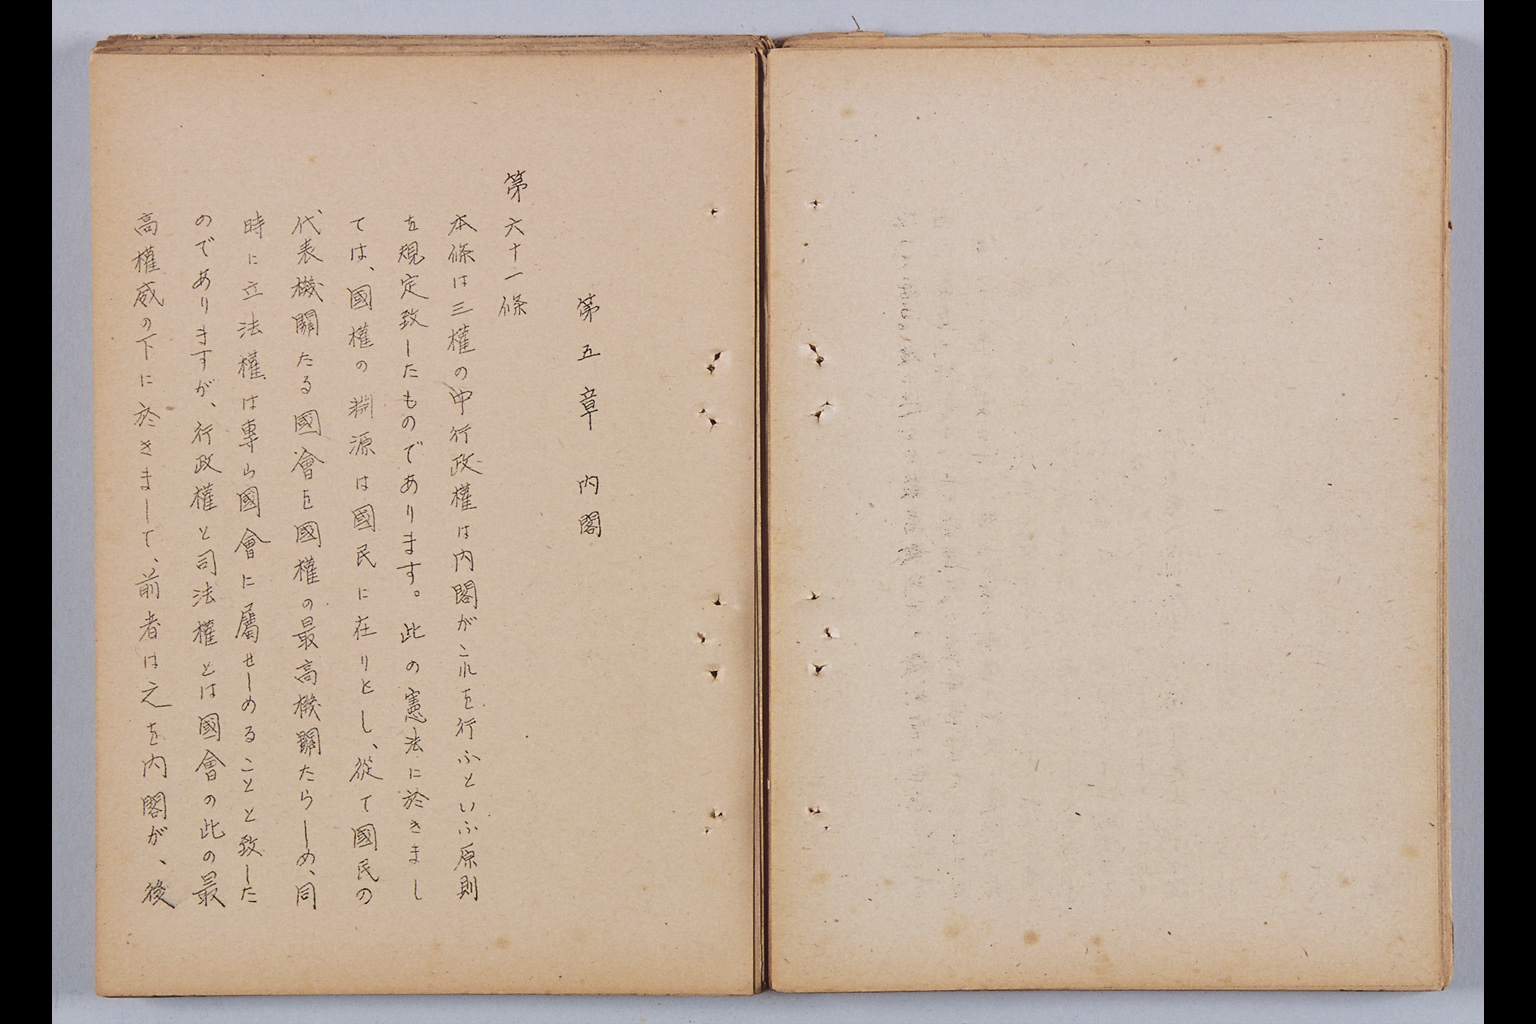 第五章　内閣
第六十一條
本條は三權の中行政權は内閣がこれを行ふといふ原則
を規定致したものであります。此の憲法に於きまし
ては、國權の淵源は國民に在りとし、從て國民の
代表機關たる國會を國權の最高機關たらしめ、同
時に立法權は專ら國會に屬せしめることと致した
のでありますが、行政權と司法權とは國會の此の最
高權威の下に於きまして、前者は之を内閣が、後